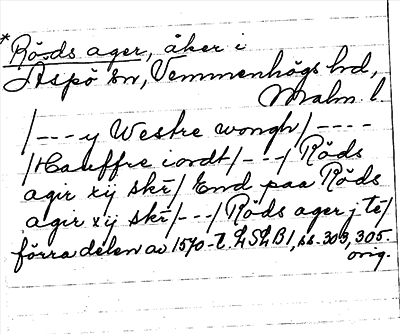 * Röds ager, åker i
Aspö sn, Vemmenhögs hd,
Malm. l.
/---y Westre wongh/----
/Hauffre iordt/---/ Röds
agir xij skr/ End paa Röds
agir xij skr/---/ Röds ager j te/
förra delen av 1570-t. LSLB1, ss. 303, 305.
orig.